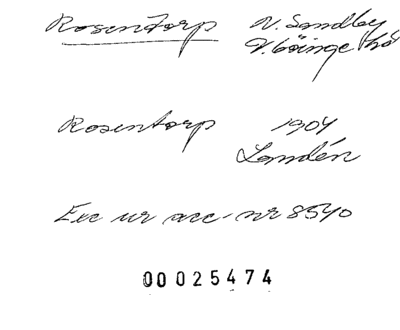 Rosentorp V. Sandby
V. Göinge hd
Rosentorp 1904
Landén
Exc ur acc. nr 8540
00025474